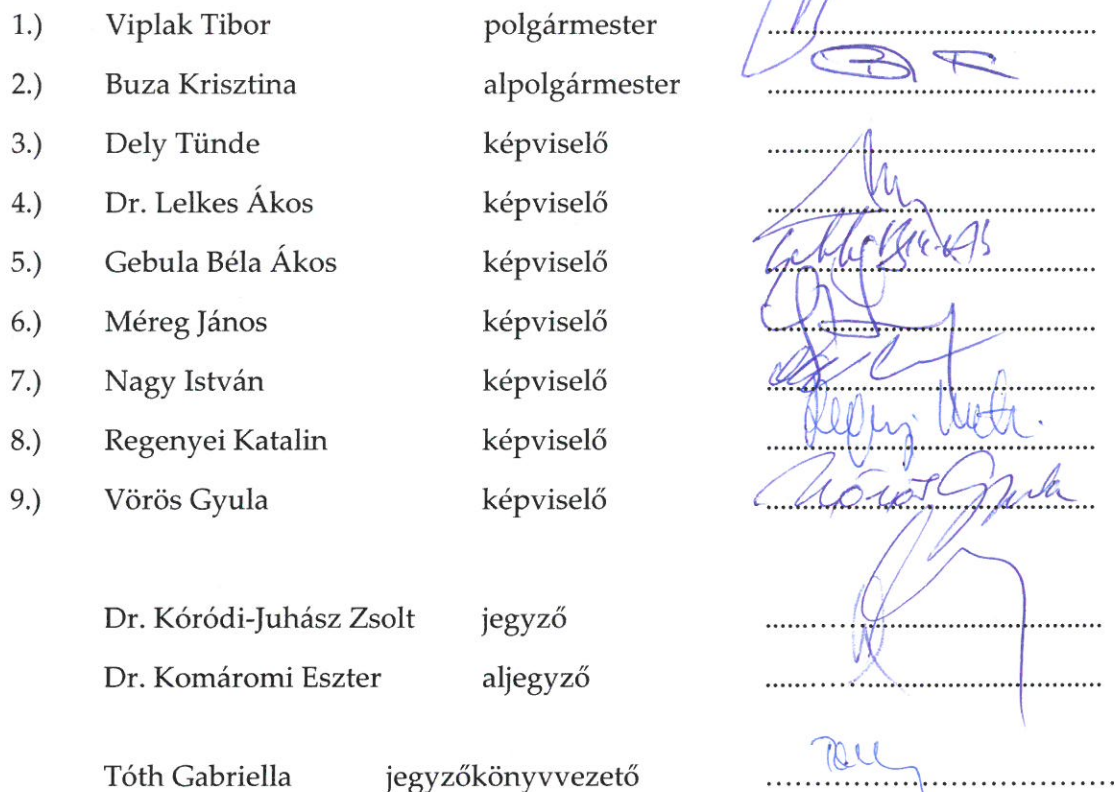 1.) Viplak Tibor polgármester ........................................
2.) Buza Krisztina alpolgármester ........................................
3.) Dely Tünde képviselő ........................................
4.) Dr. Lelkes Ákos képviselő ........................................
5.) Gebula Béla Ákos képviselő ........................................
6.) Méreg János képviselő ........................................
7.) Nagy István képviselő ........................................
8.) Regenyei Katalin képviselő ........................................
9.) Vörös Gyula képviselő Vörös Gyula
Dr. Kóródi-Juhász Zsolt jegyző ........................................
Dr. Komáromi Eszter aljegyző ........................................
Tóth Gabriella jegyzőkönyvvezető ........................................